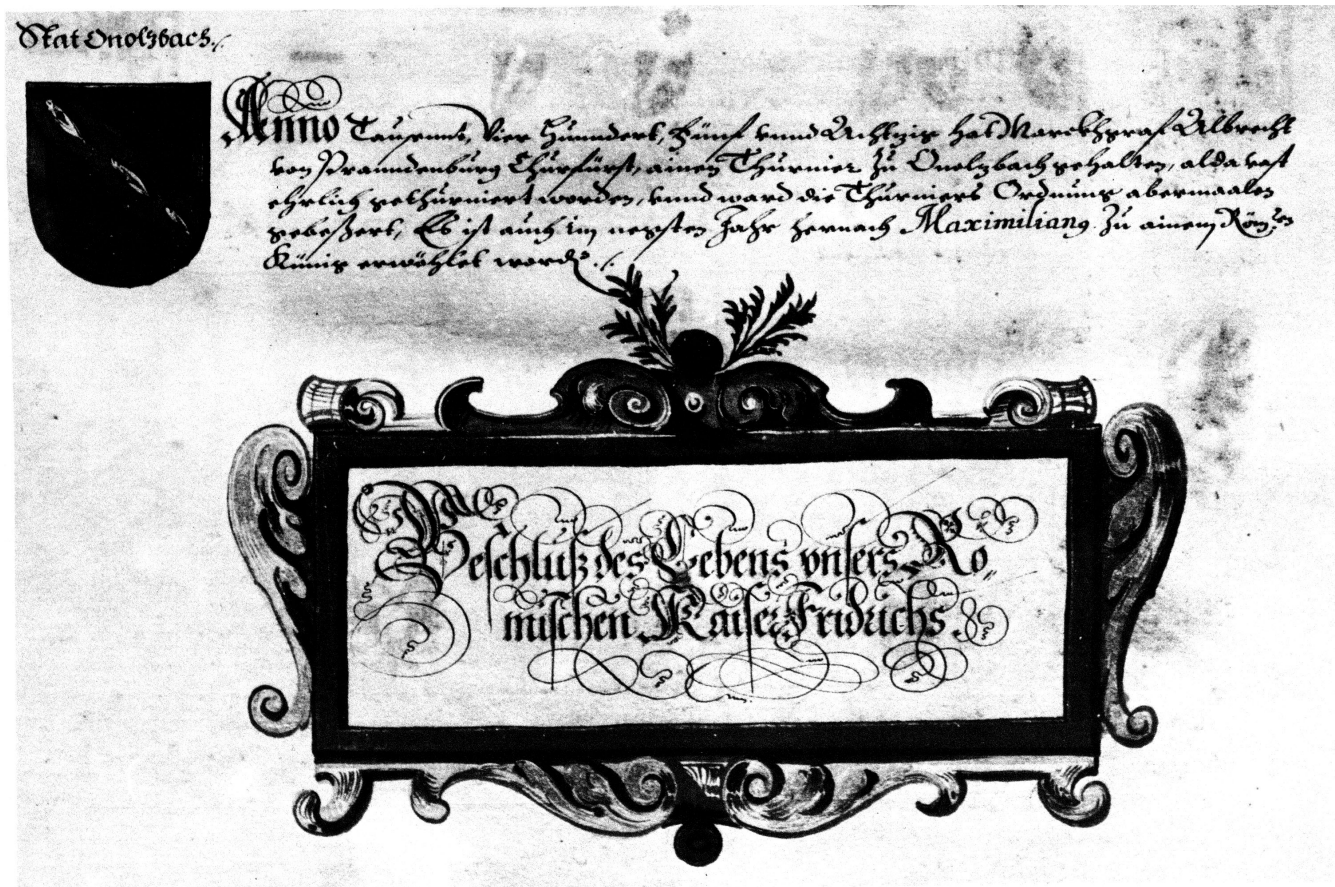 Stat Onolzbach.
Anno Tausennt, Vier Hunndert, Fünf unnd Achtzig hat Marckhgraf Albrecht
von Pranndenburg Churfürst, ainen Thurnier zu Onolzbach gehalten, alda vast
ehrlich gethurniert worden, unnd ward die Thurniers Ordnung abermaalen
gebeßert, Es ist auch im negsten Jahr hernach Maximiliang. Zu ainem Röm:en
Künig erwöhlet word.
Beschluß des Lebens vnsers Ro„
mischen Kaiser Fridrichs